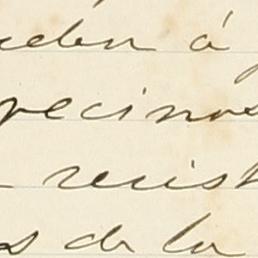 ceden á
vecinos
resist
s de la